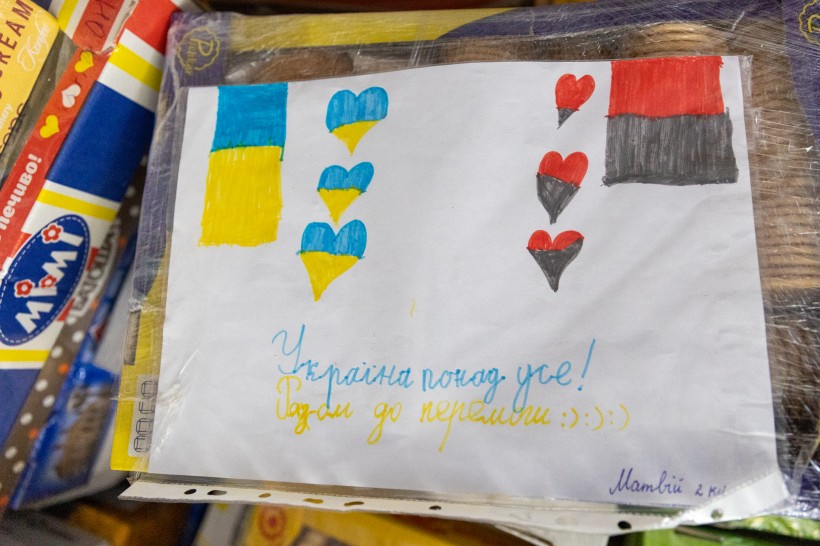 Україна понад усе!
Разом до перемоги :) :) :)
Матвій 2 кл
MIMI
печиво!
CREAM